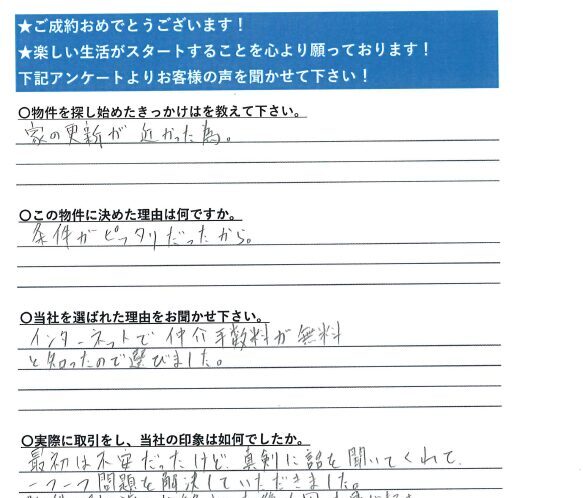 ★ご成約おめでとうございます！
★楽しい生活がスタートすることを心より願っております！
下記アンケートよりお客様の声を聞かせて下さい！
〇物件を探し始めたきっかけはを教えて下さい。
家の更新が近かった為。
〇この物件に決めた理由は何ですか。
条件がピッタリだったから。
〇当社を選ばれた理由をお聞かせ下さい。
インターネットで仲介手数料が無料
と知ったので選びました。
〇実際に取引をし、当社の印象は如何でしたか。
最初は不安だったけど、真剣に話を聞いてくれて、
一つ一つ問題を解決していただきました。